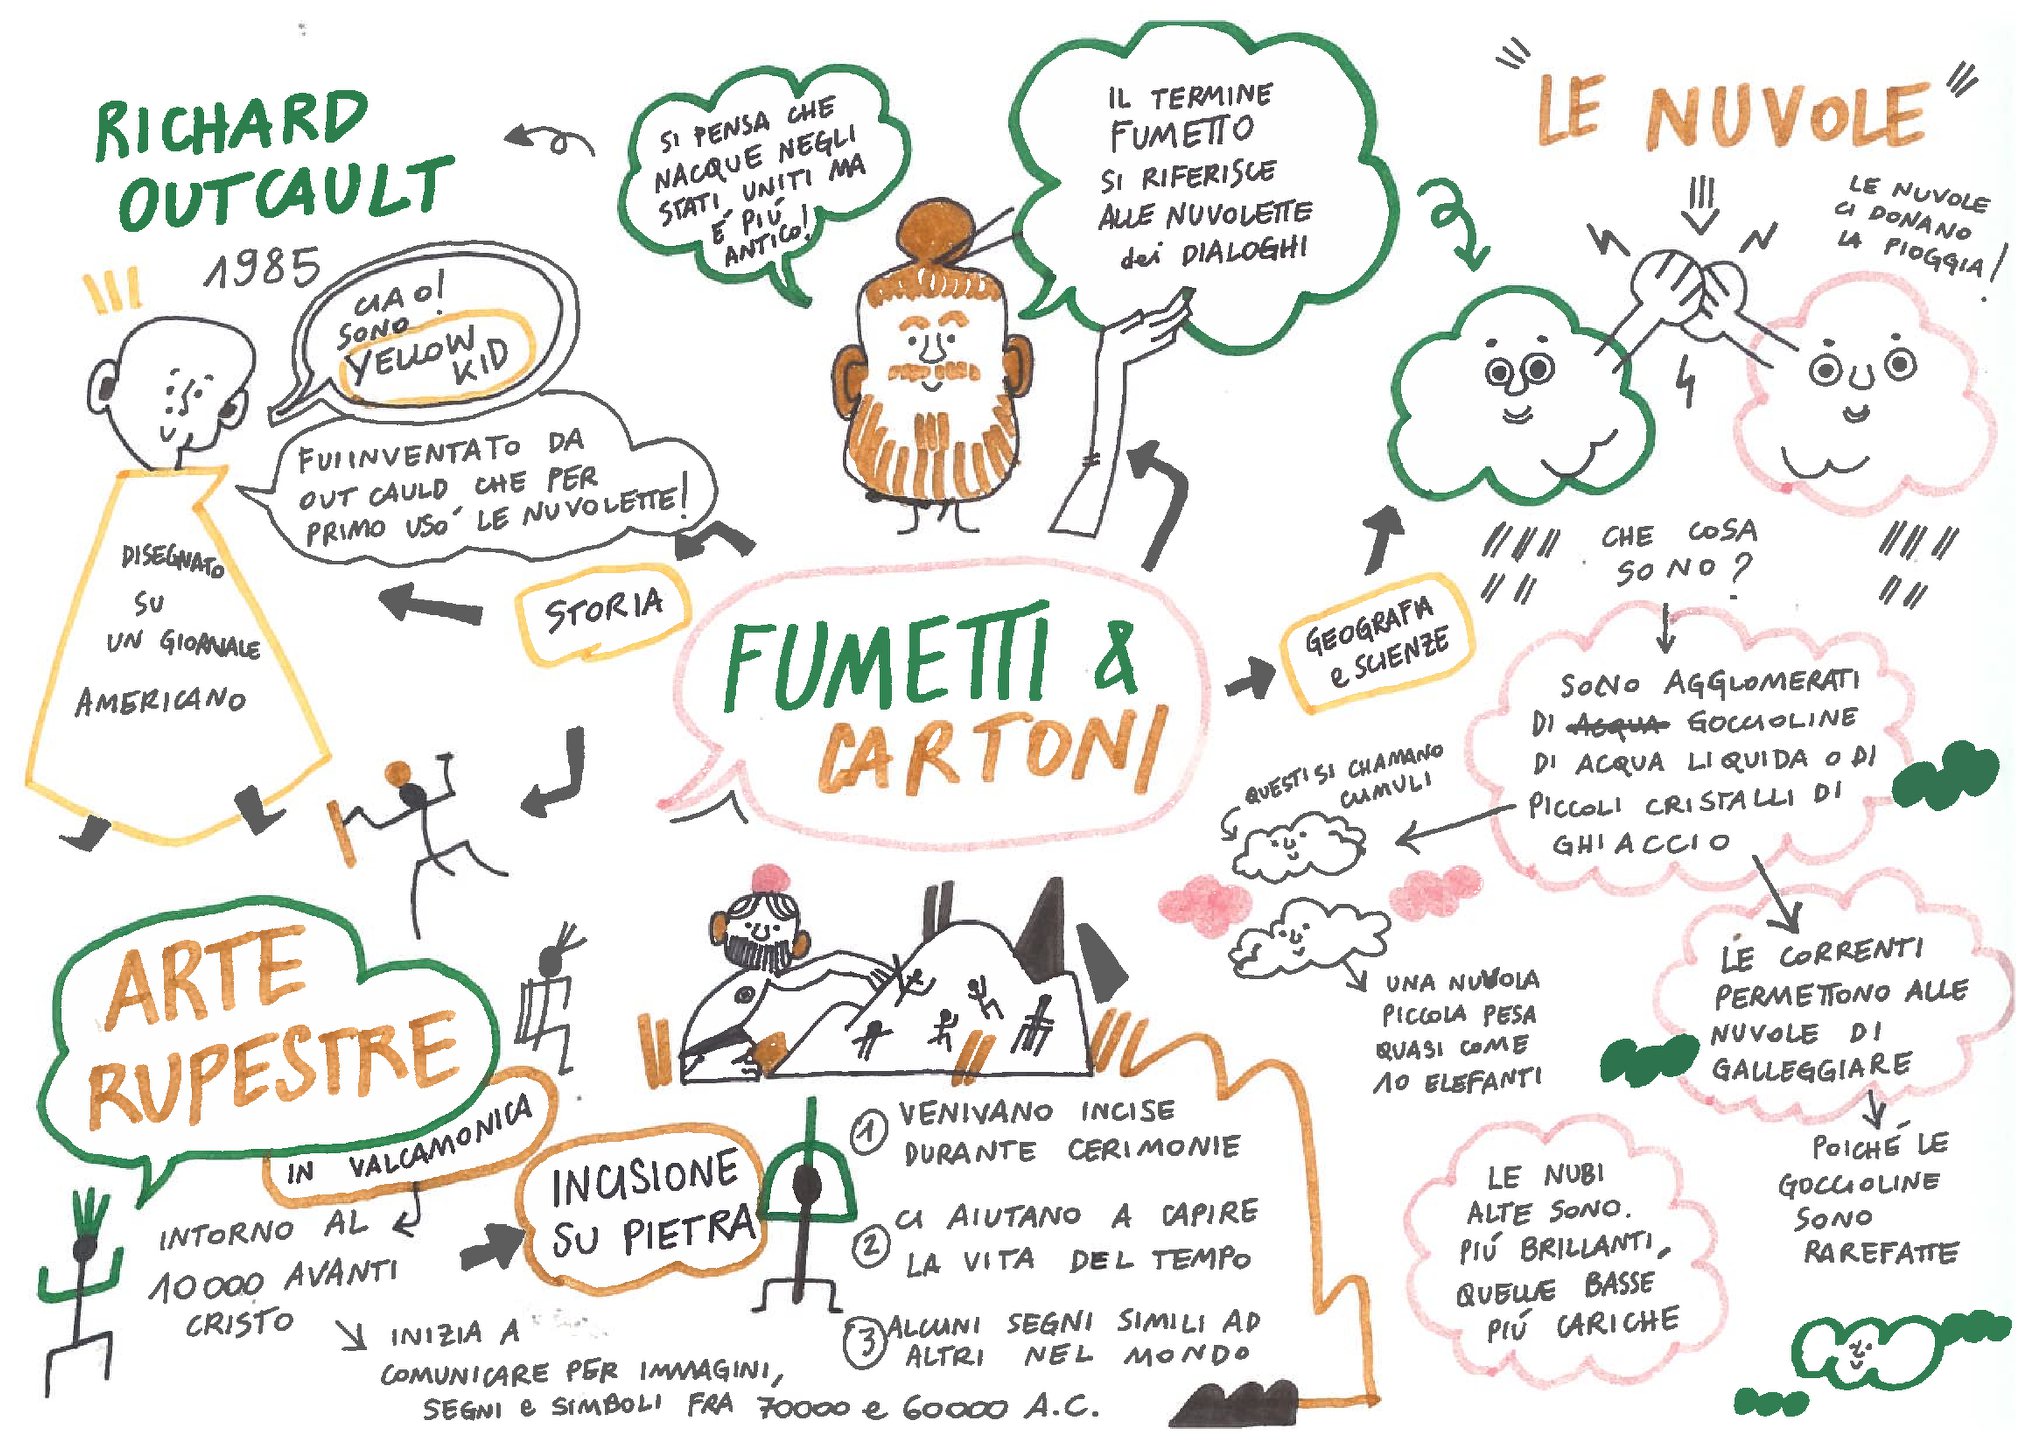 RICHARD
OUTCAULT
1985
CIAO!
SONO
YELLOW
KID
FUI INVENTATO DA
OUT CAULD CHE PER
PRIMO USO' LE NUVOLETTE!
DISEGNATO
SU
UN GIORNALE
AMERICANO
SI PENSA CHE
NACQUE NEGLI
STATI UNITI MA
É PIÚ
ANTICO!
IL TERMINE
FUMETTO
SI RIFERISCE
ALLE NUVOLETTE
dei DIALOGHI
LE NUVOLE
LE NUVOLE
CI DONANO
LA PIOGGIA!
STORIA
FUMETTI &
CARTONI
GEOGRAFIA
e SCIENZE
CHE COSA
SONO?
SONO AGGLOMERATI
DI ACQUA GOCCIOLINE
DI ACQUA LIQUIDA O DI
PICCOLI CRISTALLI DI
GHIACCIO
QUESTI SI CHAMANO
CUMULI
UNA NUVOLA
PICCOLA PESA
QUASI COME
10 ELEFANTI
LE CORRENTI
PERMETTONO ALLE
NUVOLE DI
GALLEGGIARE
POICHÉ LE
GOCCIOLINE
SONO
RAREFATTE
LE NUBI
ALTE SONO.
PIÚ BRILLANTI,
QUELLE BASSE
PIÚ CARICHE
ARTE
RUPESTRE
IN VALCAMONICA
INTORNO AL
10000 AVANTI
CRISTO
INIZIA A
COMUNICARE PER IMMAGINI,
SEGNI e SIMBOLI FRA 70000 e 60000 A.C.
INCISIONE
SU PIETRA
1 VENIVANO INCISE
DURANTE CERIMONIE
2 CI AIUTANO A CAPIRE
LA VITA DEL TEMPO
3 ALCUNI SEGNI SIMILI AD
ALTRI NEL MONDO